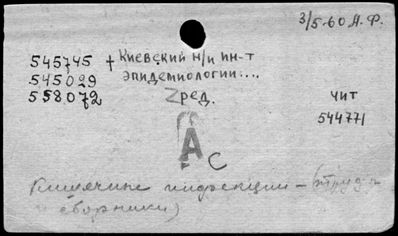 3/5-60 А.Ф.
545745 + Киевский н/и ин-т
545029 эпидемиологии...
558072 2 ред. чит
544771
А С
Кишечные инфекции – (труды
и сборники)